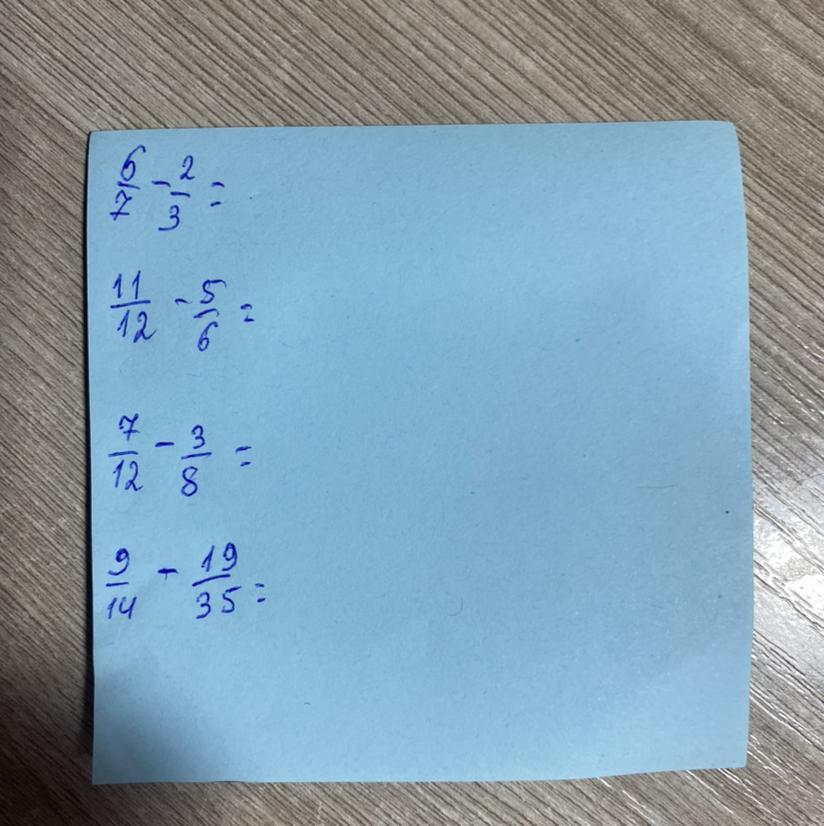 6/7 - 2/3 =
11/12 - 5/6 =
7/12 - 3/8 =
9/14 - 19/35 =